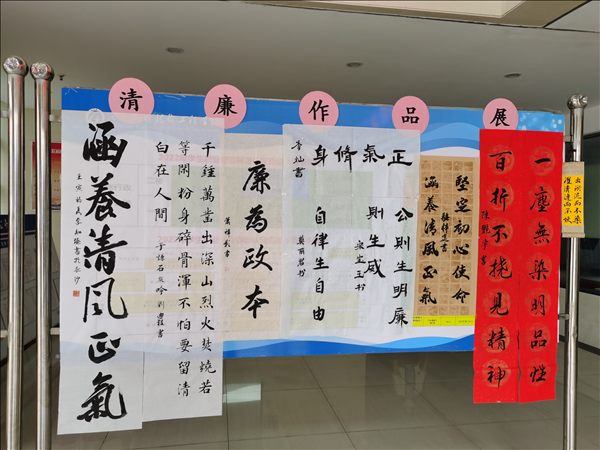 清廉作品展
涵養清风正氣
千錘萬凿出深山烈火焚燒若
等閑粉身碎骨渾不怕要留清
白在人間
于謙石灰吟
廉為政本
正氣脩身
公則生明廉
則生威
自律生自由
李灿書
堅定初心使命
涵養清風正氣
一塵無染明品性
百折不撓見精神
出淤泥而不染
濯清漣而不妖